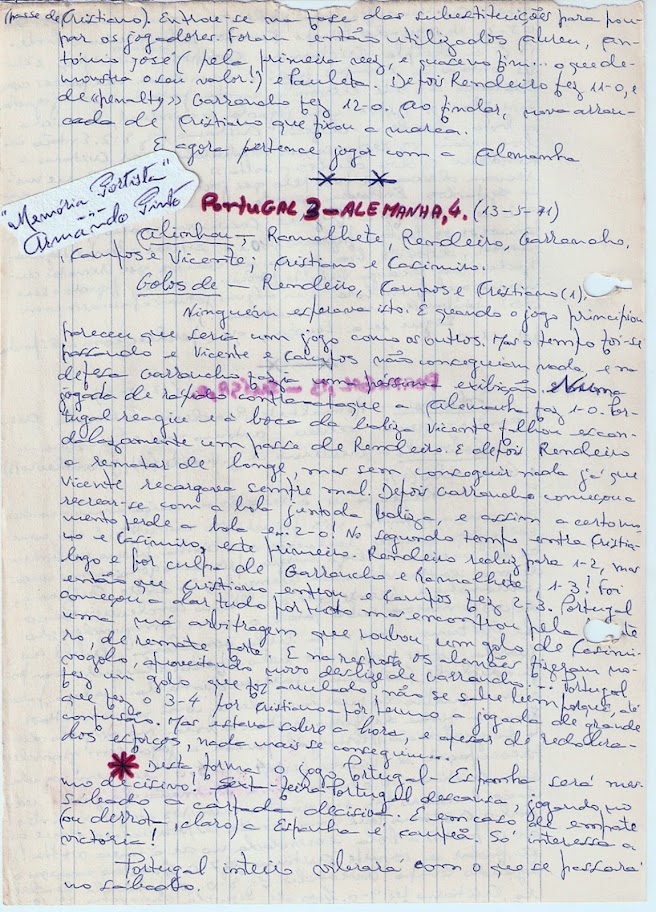 (passe de Cristiano). Entrou-se na fase das substituições para pou-
par os jogadores. Foram então utilizados Abreu, An-
tónio José (pela primeira vez, e quase no fim... o que de-
monstra o seu valor!) e Pauleta. Depois Rendeiro fez 11-0, e
de «penalty» Garrancho fez 12-0. Ao findar, nova arran-
cada de Cristiano que fixou a marca.
E agora pertence jogar com a Alemanha
"Memória Portista"
Armando Pinto
PORTUGAL 3 - ALEMANHA, 4. (13-5-71)
Alinhou - Ramalhete, Rendeiro, Garrancho,
Campos e Vicente; Cristiano e Casimiro.
Golos de - Rendeiro, Campos e Cristiano (1).
Ninguém esperava isto. E quando o jogo principiou
pareceu que seria um jogo como os outros. Mas o tempo foi-se
passando e Vicente e Campos não conseguiam nada, e na
defesa Garrancho fazia uma péssima exibição. Numa
jogada de rápido contra-ataque a Alemanha fez 1-0. Por-
tugal reagiu e à boca da baliza Vicente falhou escan-
dalosamente um passe de Rendeiro. E depois Rendeiro
a rematar de longe, mas sem conseguir nada já que
Vicente recargava sempre mal. Depois Garrancho começou a
recrear-se com a bola junto da baliza, e assim a certo mo-
mento perde a bola e... 2-0! No segundo tempo entra Cristia-
no e Casimiro, este primeiro. Rendeiro reduz para 1-2, mas
logo e por culpa de Garrancho e Ramalhete, 1-3! Foi
então que Cristiano entrou e Campos fez 2-3. Portugal
começou a dar tudo por tudo mas encontrou pela frente
uma má arbitragem que roubou um golo de Casimi-
ro, de remate forte. E na resposta os alemães fizeram no-
vo golo, aproveitando novo deslize de Garrancho... Portugal
fez um golo que foi anulado não se sabe bem porquê, até
que fez o 3-4 por Cristiano pôr termo a jogada de grande
confusão. Mas estava sobre a hora, e apesar de redobra-
dos esforços, nada mais se conseguiu...
* Desta forma o jogo Portugal - Espanha será mes-
mo decisivo! Sexta-feira Portugal descansa, jogando no
sábado a cartada decisiva. E em caso de empate
(ou derrota, claro) a Espanha é campeã. Só interessa a
victória!
Portugal inteiro vibrará com o que se passará
no sábado.